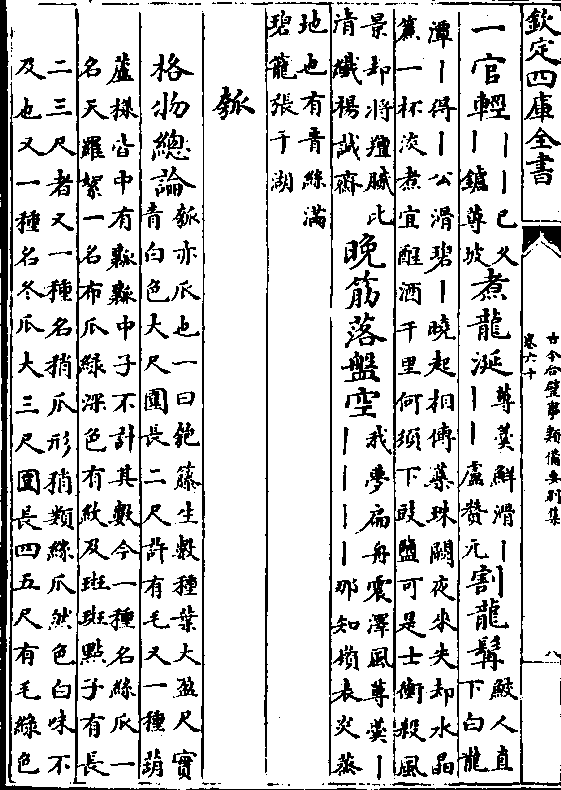 欽定四庫全書
古今合璧事類備要别集
卷六十
八
一官輕｜｜｜已久｜鑪蓴坡煮龍涎蓴羮鮮滑｜｜｜盧贊元割龍髯鮫人直下白龍
潭｜得｜公滑碧｜曉起相傳蘂珠闕夜來失却水晶
簾一杯淡煮宜醒酒千里何須下豉鹽可是士衡殺風
景却將羶膩比清纎楊誠齋晚筯落盤空我夢扁舟震澤風蓴羮｜｜｜｜｜那知嶺表炎蒸
地也有青絲滿
碧籠張于湖
瓠
格物總論瓠亦瓜也一曰匏籐生數種葉大盈尺實青白色大尺圍長二尺許有毛又一種葫
蘆様皆中有瓤瓤中子不計其數今一種名絲瓜一
名天羅絮一名布瓜緑深色有紋及斑斑點子有長
二三尺者又一種名稍瓜形稍類絲瓜然色白味不
及也又一種名冬瓜大三尺圍長四五尺有毛緑色